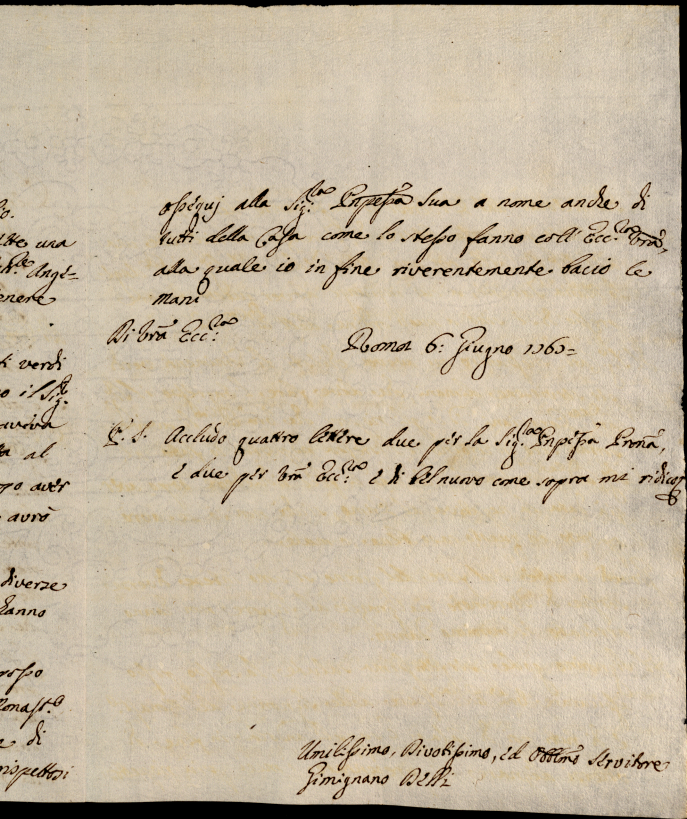 io.
una
Angi=
enere
ti verdi
o il Sig.
al
aver
avrò
diverze
hanno
Monast.o
e di
rispettosi
ossequj alla Sig.ra Pnpessa Sua a nome anche di
tutti della Casa come lo stesso fanno coll' Ecc.za Vrã,
alla quale io in fine riverentemente bacio le
mani
Di Vrã Ecc.za
Roma 6: Giugno
P. S. Accludo quattro lettere due per la Sig.ra Pnpessa Pronã,
e due per Vrã Ecc.za e di bel nuovo come sopra mi ridico
Umilissimo, Divotissimo, ed Obblmo Servitore
Gimignano Belli